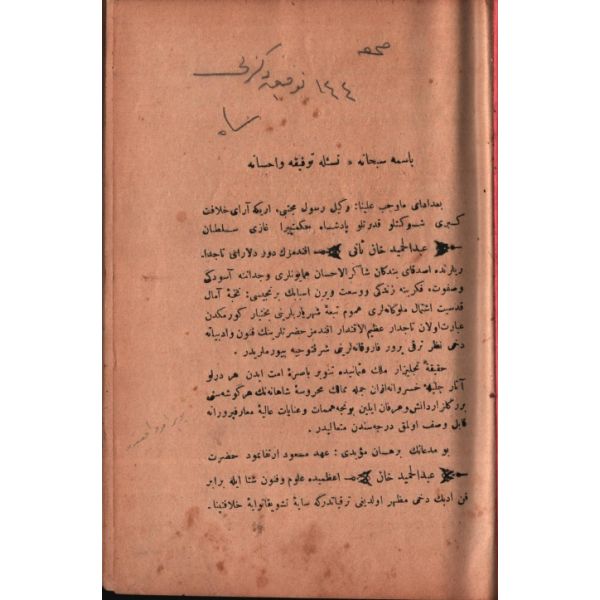 صحیفه
١٤٤
باسمه سبحانه * نسئله توفیقه واحسانه
بعدادای ماوجب علینا: وكیل رسول مجتبی، اریكه آرای خلافت
كبری شوكتلو قدرتلو پادشاه حكمتپیرا غازی سلطان
عبدالحمید خان ثانی افندمزك دور دلارای تاجدا۔
ریلرنده اصدقای بندكان شاكرالاحسان همایونلری وجداننه آسودكی
وصفوت، فكرینه زندكی ووسعت ویرن اسبابك برنجیسی: نخبهٔ آمال
قدسیت اشتمال ملوكانه‌لری عموم تبعهٔ شهریاریلرینی بختیار كورمكدن
عبارت‌اولان تاجدار عظیم‌الاقتدار افندمز حضرتلرینك فنون وادبیاته
دخی نظر ترقی پرور فاروقانه‌لرینی شرفتوجیه بیورملریدر.
حقیقةً تجلیزار ملك عثمانیده تنویر باصرهٔ امت ایدن هر درلو
آثار جلیلهٔ خسروانه‌اقران جمله ممالك محروسهٔ شاهانه‌نك هر كوشه‌سنی
برر كلزار دانش وعرفان ایلین بونجه همت وعنایات عالیهٔ معارفپرورانه
قابل وصف اولمق درجه‌سندن متعالیدر.
بو مدعانك برهان مؤیدی: عهد مسعود ارتقانمود حضرت
عبدالحمید خان اعظمیده علوم وفنون شتا ایله برابر
فن ادبك دخی مظهر اولدیغی ترقیاتدركه سایهٔ تشویقاتوایهٔ خلافتینا۔